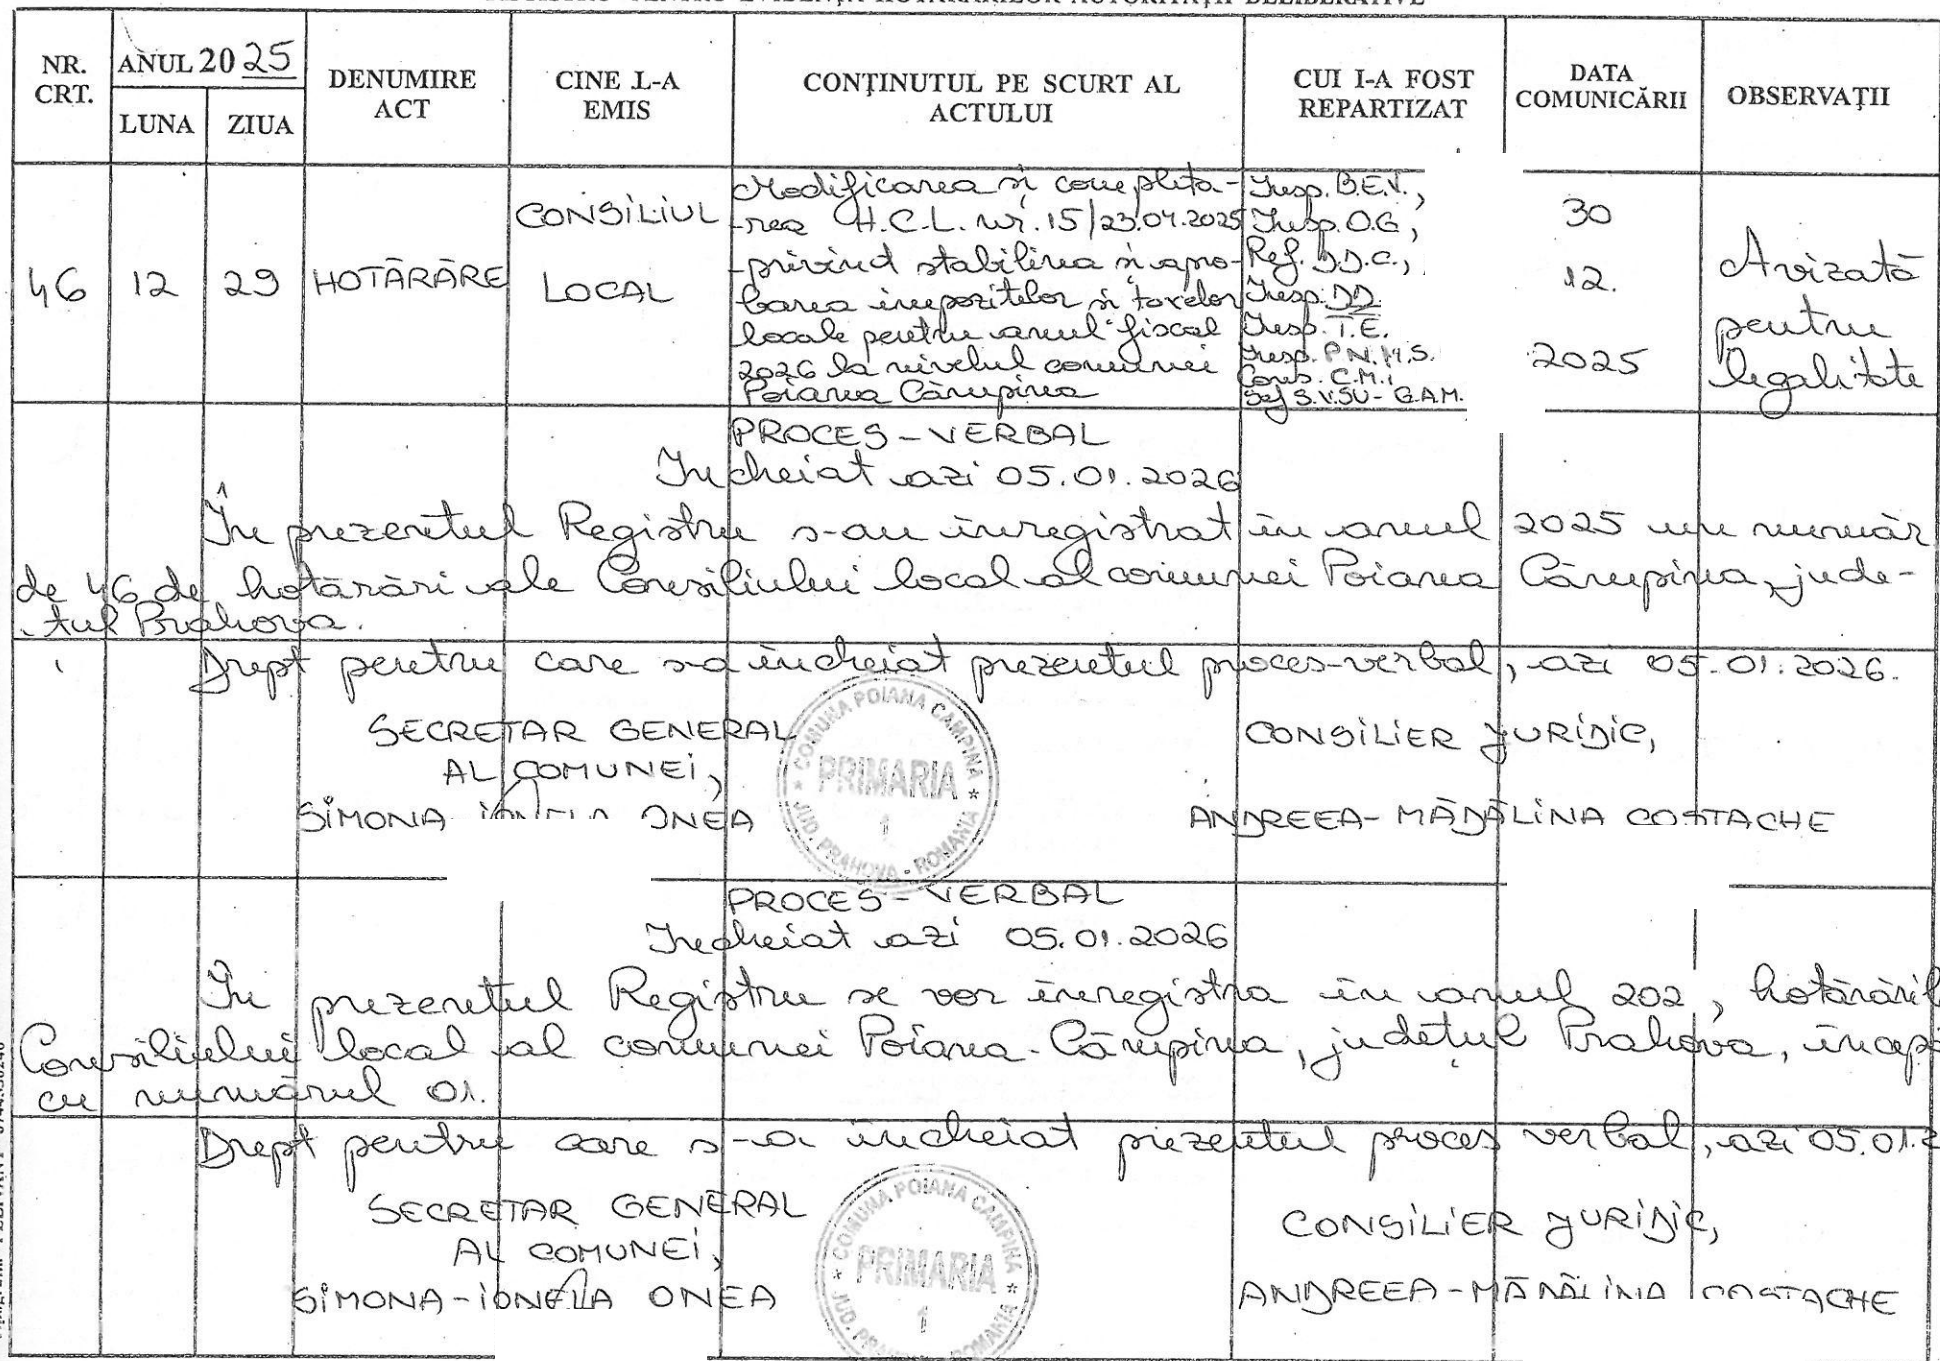 REGISTRU PENTRU EVIDENȚA HOTĂRÂRILOR AUTORITĂȚII DELIBERATIVE
NR. CRT.
ANUL 20 25
LUNA
ZIUA
DENUMIRE ACT
CINE L-A EMIS
CONŢINUTUL PE SCURT AL ACTULUI
CUI I-A FOST REPARTIZAT
DATA COMUNICĂRII
OBSERVAŢII
46
12
29
HOTĂRÂRE
CONSILIUL
LOCAL
Modificarea și completa-
-rea H.C.L. nr. 15/23.04.2025
privind stabilirea și apro-
barea impozitelor și taxelor
locale pentru anul fiscal
2026 la nivelul comunei
Poiana Câmpina
Insp. B.E.V.,
Insp. O.G,
Ref. D.D.C.,
Insp. DD.
Insp. T.E.
Insp. P.N.M.S.
Cons. C.M.
Sef S.V.SU - G.A.M.
30
12.
2025
Avizată
pentru
legalitate
PROCES - VERBAL
Incheiat azi 05.01.2026
În prezentul Registru s-au înregistrat în anul 2025 un număr
de 46 de hotărâri ale Consiliului local al comunei Poiana Câmpina, jude-
-țul Prahova.
Drept pentru care s-a încheiat prezentul proces-verbal, azi 05.01.2026.
SECRETAR GENERAL
AL COMUNEI,
SIMONA IONELA ONEA
COMUNA POIANA CAMPINA
PRIMARIA
1
JUD. PRAHOVA - ROMANIA
CONSILIER JURIDIC,
ANDREEA-MĂDĂLINA COSTACHE
PROCES - VERBAL
Incheiat azi 05.01.2026
În prezentul Registru se vor înregistra în anul 202 , hotărâril
Consiliului local al comunei Poiana-Câmpina, județul Prahova, începâ
cu numărul 01.
Drept pentru care s-a încheiat prezentul proces verbal, azi 05.01.2
SECRETAR GENERAL
AL COMUNEI,
SIMONA-IONELA ONEA
COMUNA POIANA CAMPINA
PRIMARIA
1
JUD. PRAHOVA - ROMANIA
CONSILIER JURIDIC,
ANDREEA-MĂDĂLINA COSTACHE